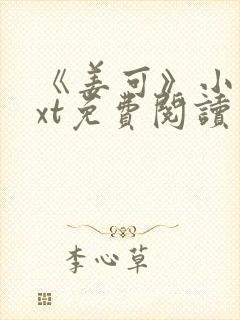 《姜可》小
xt免費閱讀
李心草